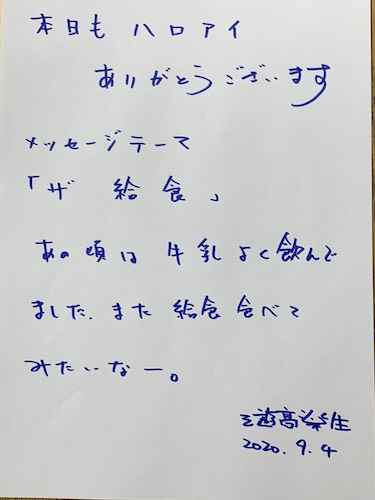 本日も ハロアイ
ありがとうございます
メッセージテーマ
「ザ 給食」
あの頃は 牛乳よく飲んで
ました。また 給食食べて
みたいなー。
三遊亭髙楽生
2020.9.4